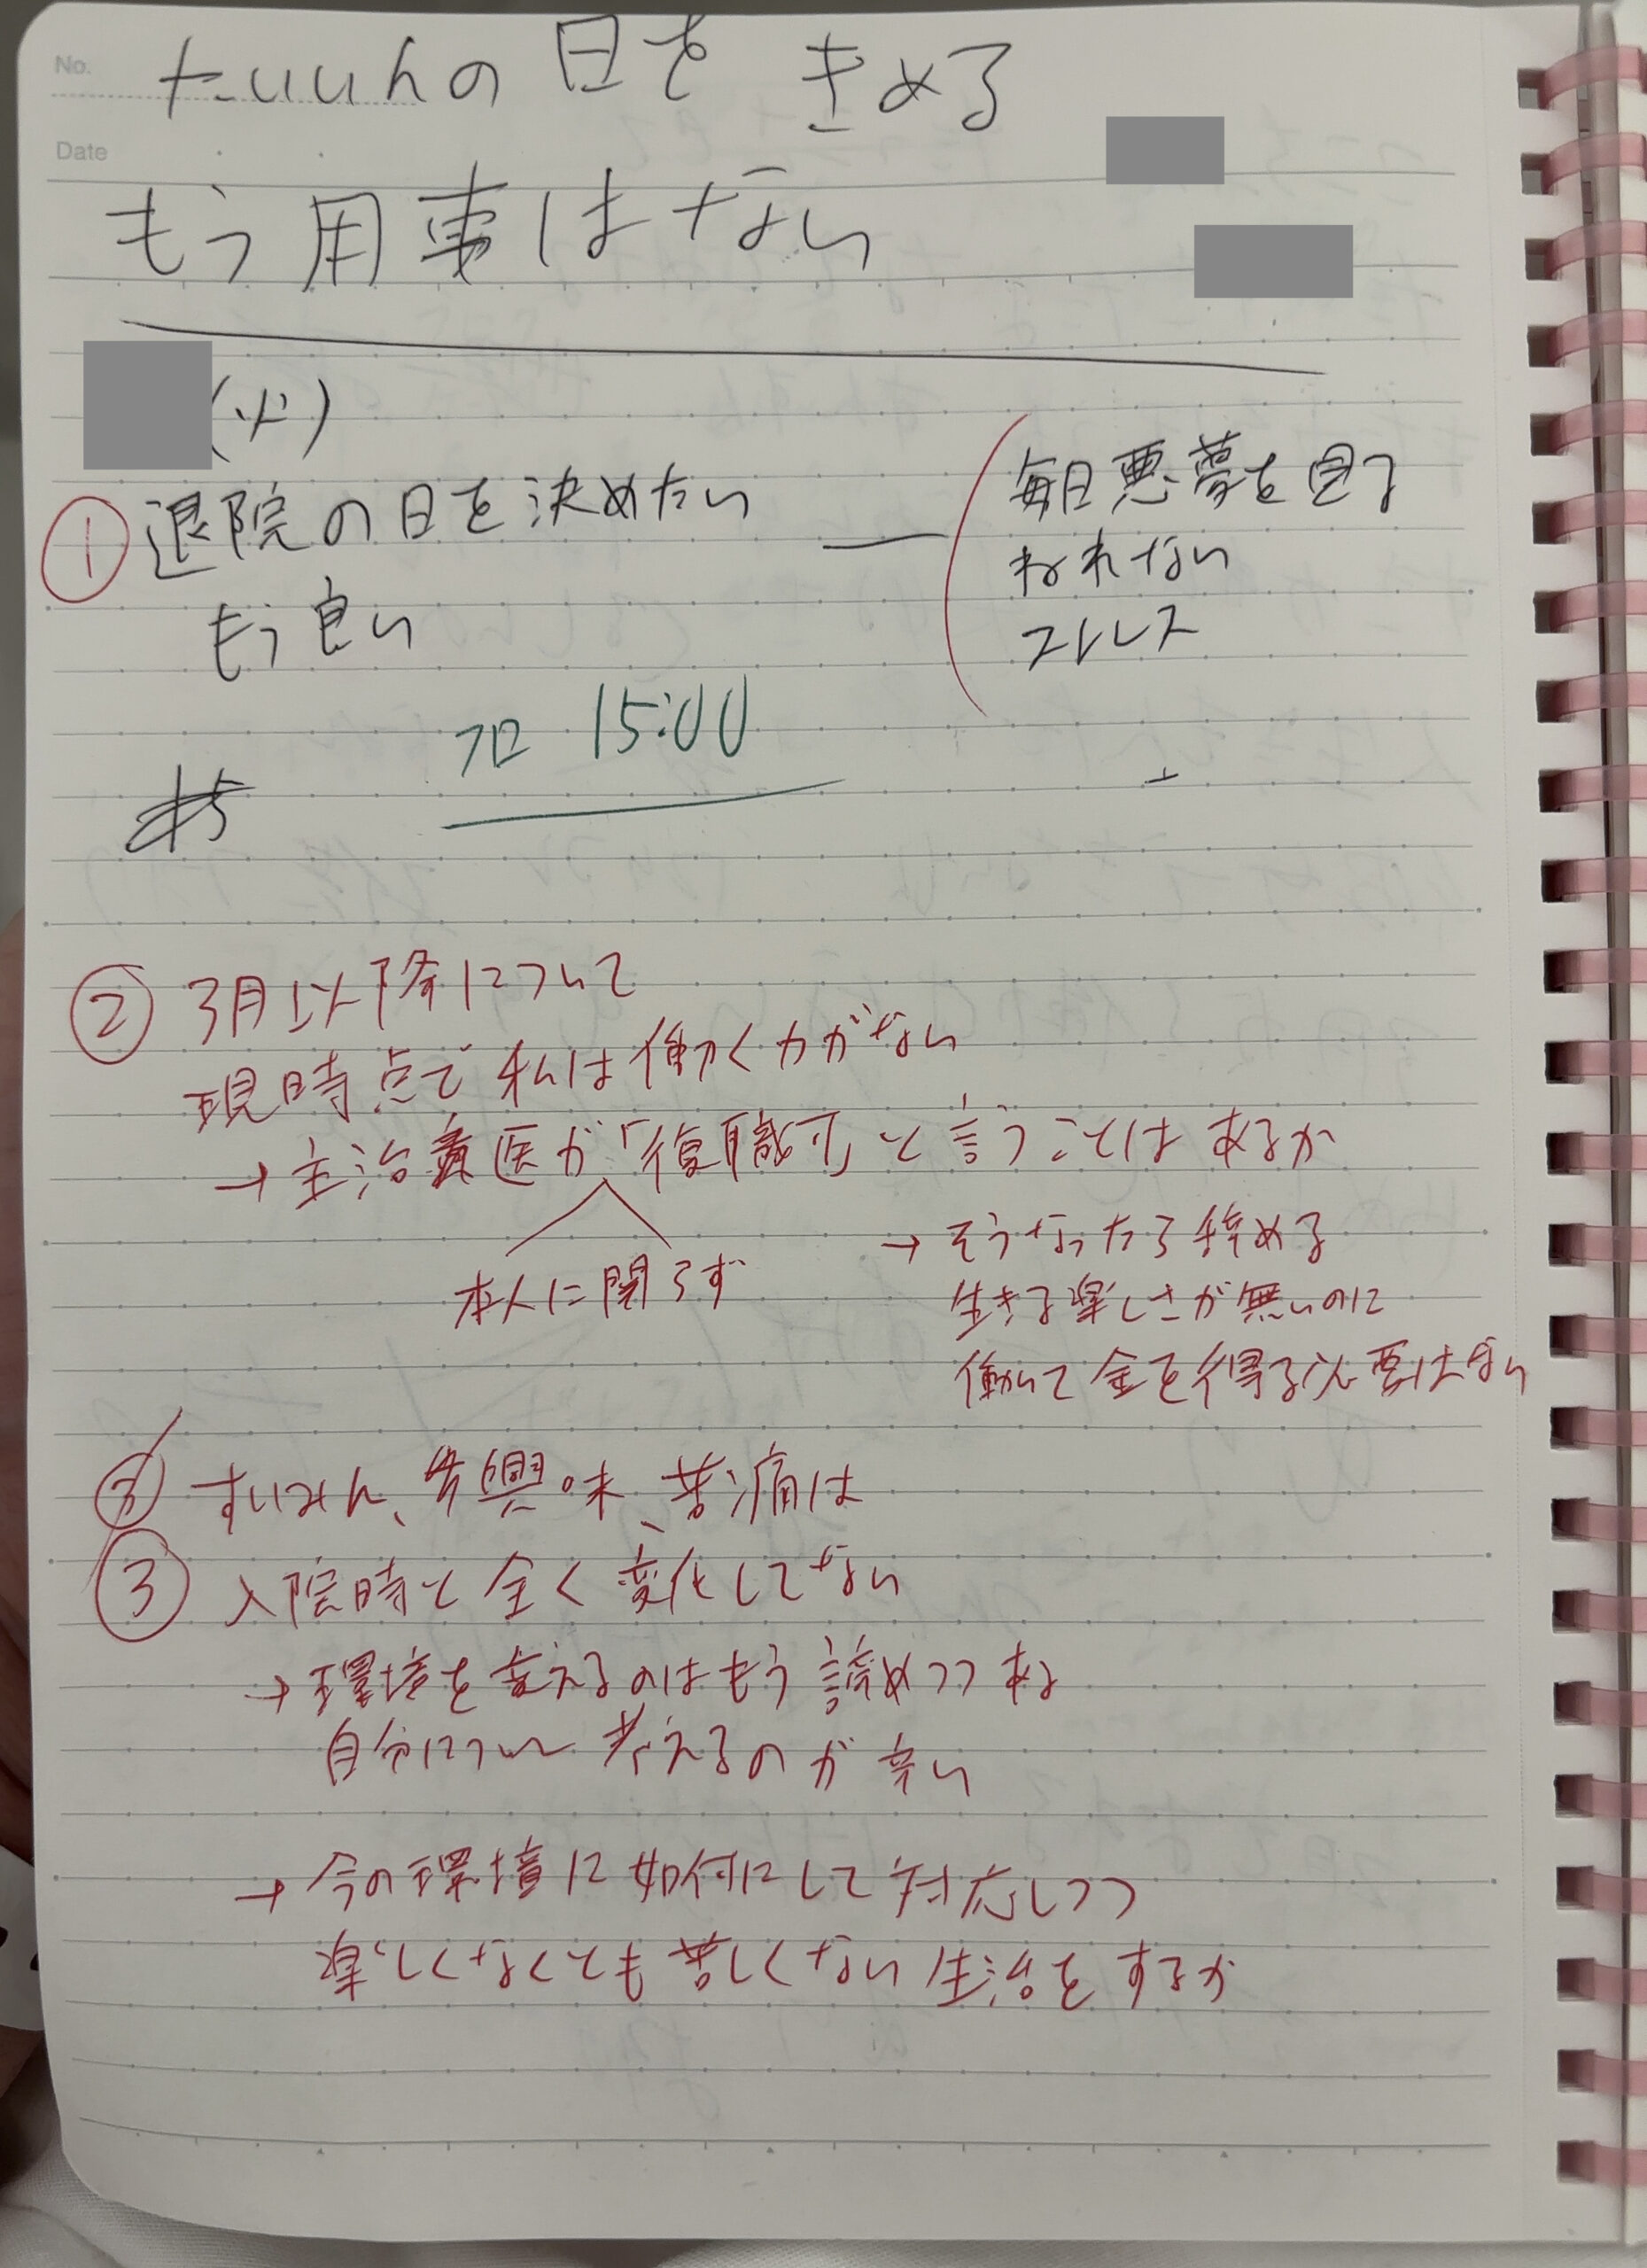 No.
たいいんの日を きめる
Date
もう用事はない
(火)
① 退院の日を決めたい
もう良い
毎日悪夢を見る
ねれない
ストレス
フロ 15:00
② 3月以降について
現時点で私は働く力がない
→主治医が「復職可」と言うことはあるか
本人に関らず
→そうなったら辞める
生きる楽しさが無いのに
働いて金を得る必要はない
すいみん、興味、苦痛は
③ 入院時と全く変化してない
→環境を変えるのはもう諦めつつある
自分について考えるのが辛い
→今の環境に如何にして対応しつつ
楽しくなくても苦しくない生活をするか